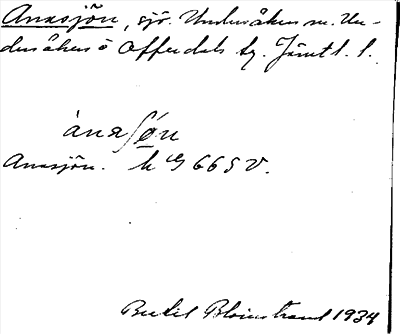 Anasjön, sjö. Undersåkers sn. Un-
dersåkers o Offerdals tg. Jämtl. l.
ànaʃøn
Anasjön. k G 665 V.
Bertil Blomstrand 1934